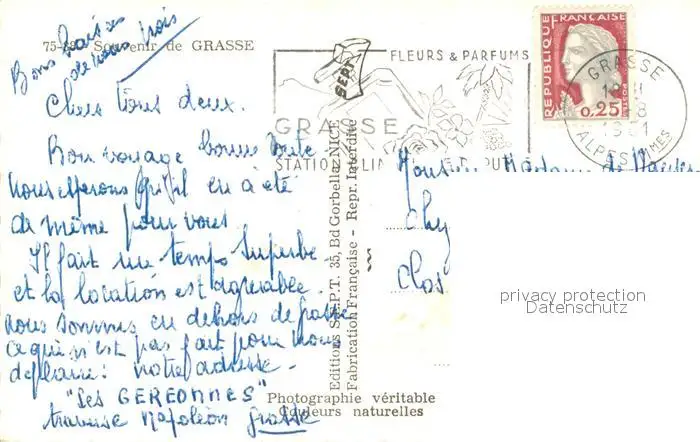 Bons baisers
de nous trois
75-83 Souvenir de GRASSE
Chers tous deux.
Bon voyage bonne route
nous espérons qu'il en a été
de même pour vous
Il fait un temps superbe
et la location est agréable.
nous sommes en dehors de Grasse
ce qui n'est pas fait pour nous
déplaire: notre adresse
"Les GEREONNES"
traverse Napoléon Grasse
Editions S.E.P.T. 35, Bd Gorbella, NICE
Fabrication Française - Repr. Interdite
Photographie véritable
Couleurs naturelles
SEPT
FLEURS & PARFUMS
GRASSE
STATION CLIM
REPUBLIQUE FRANÇAISE
POSTES
0,25
GRASSE
18
ALPES MMES
Monsieur Madame de
Clos
privacy protection
Datenschutz